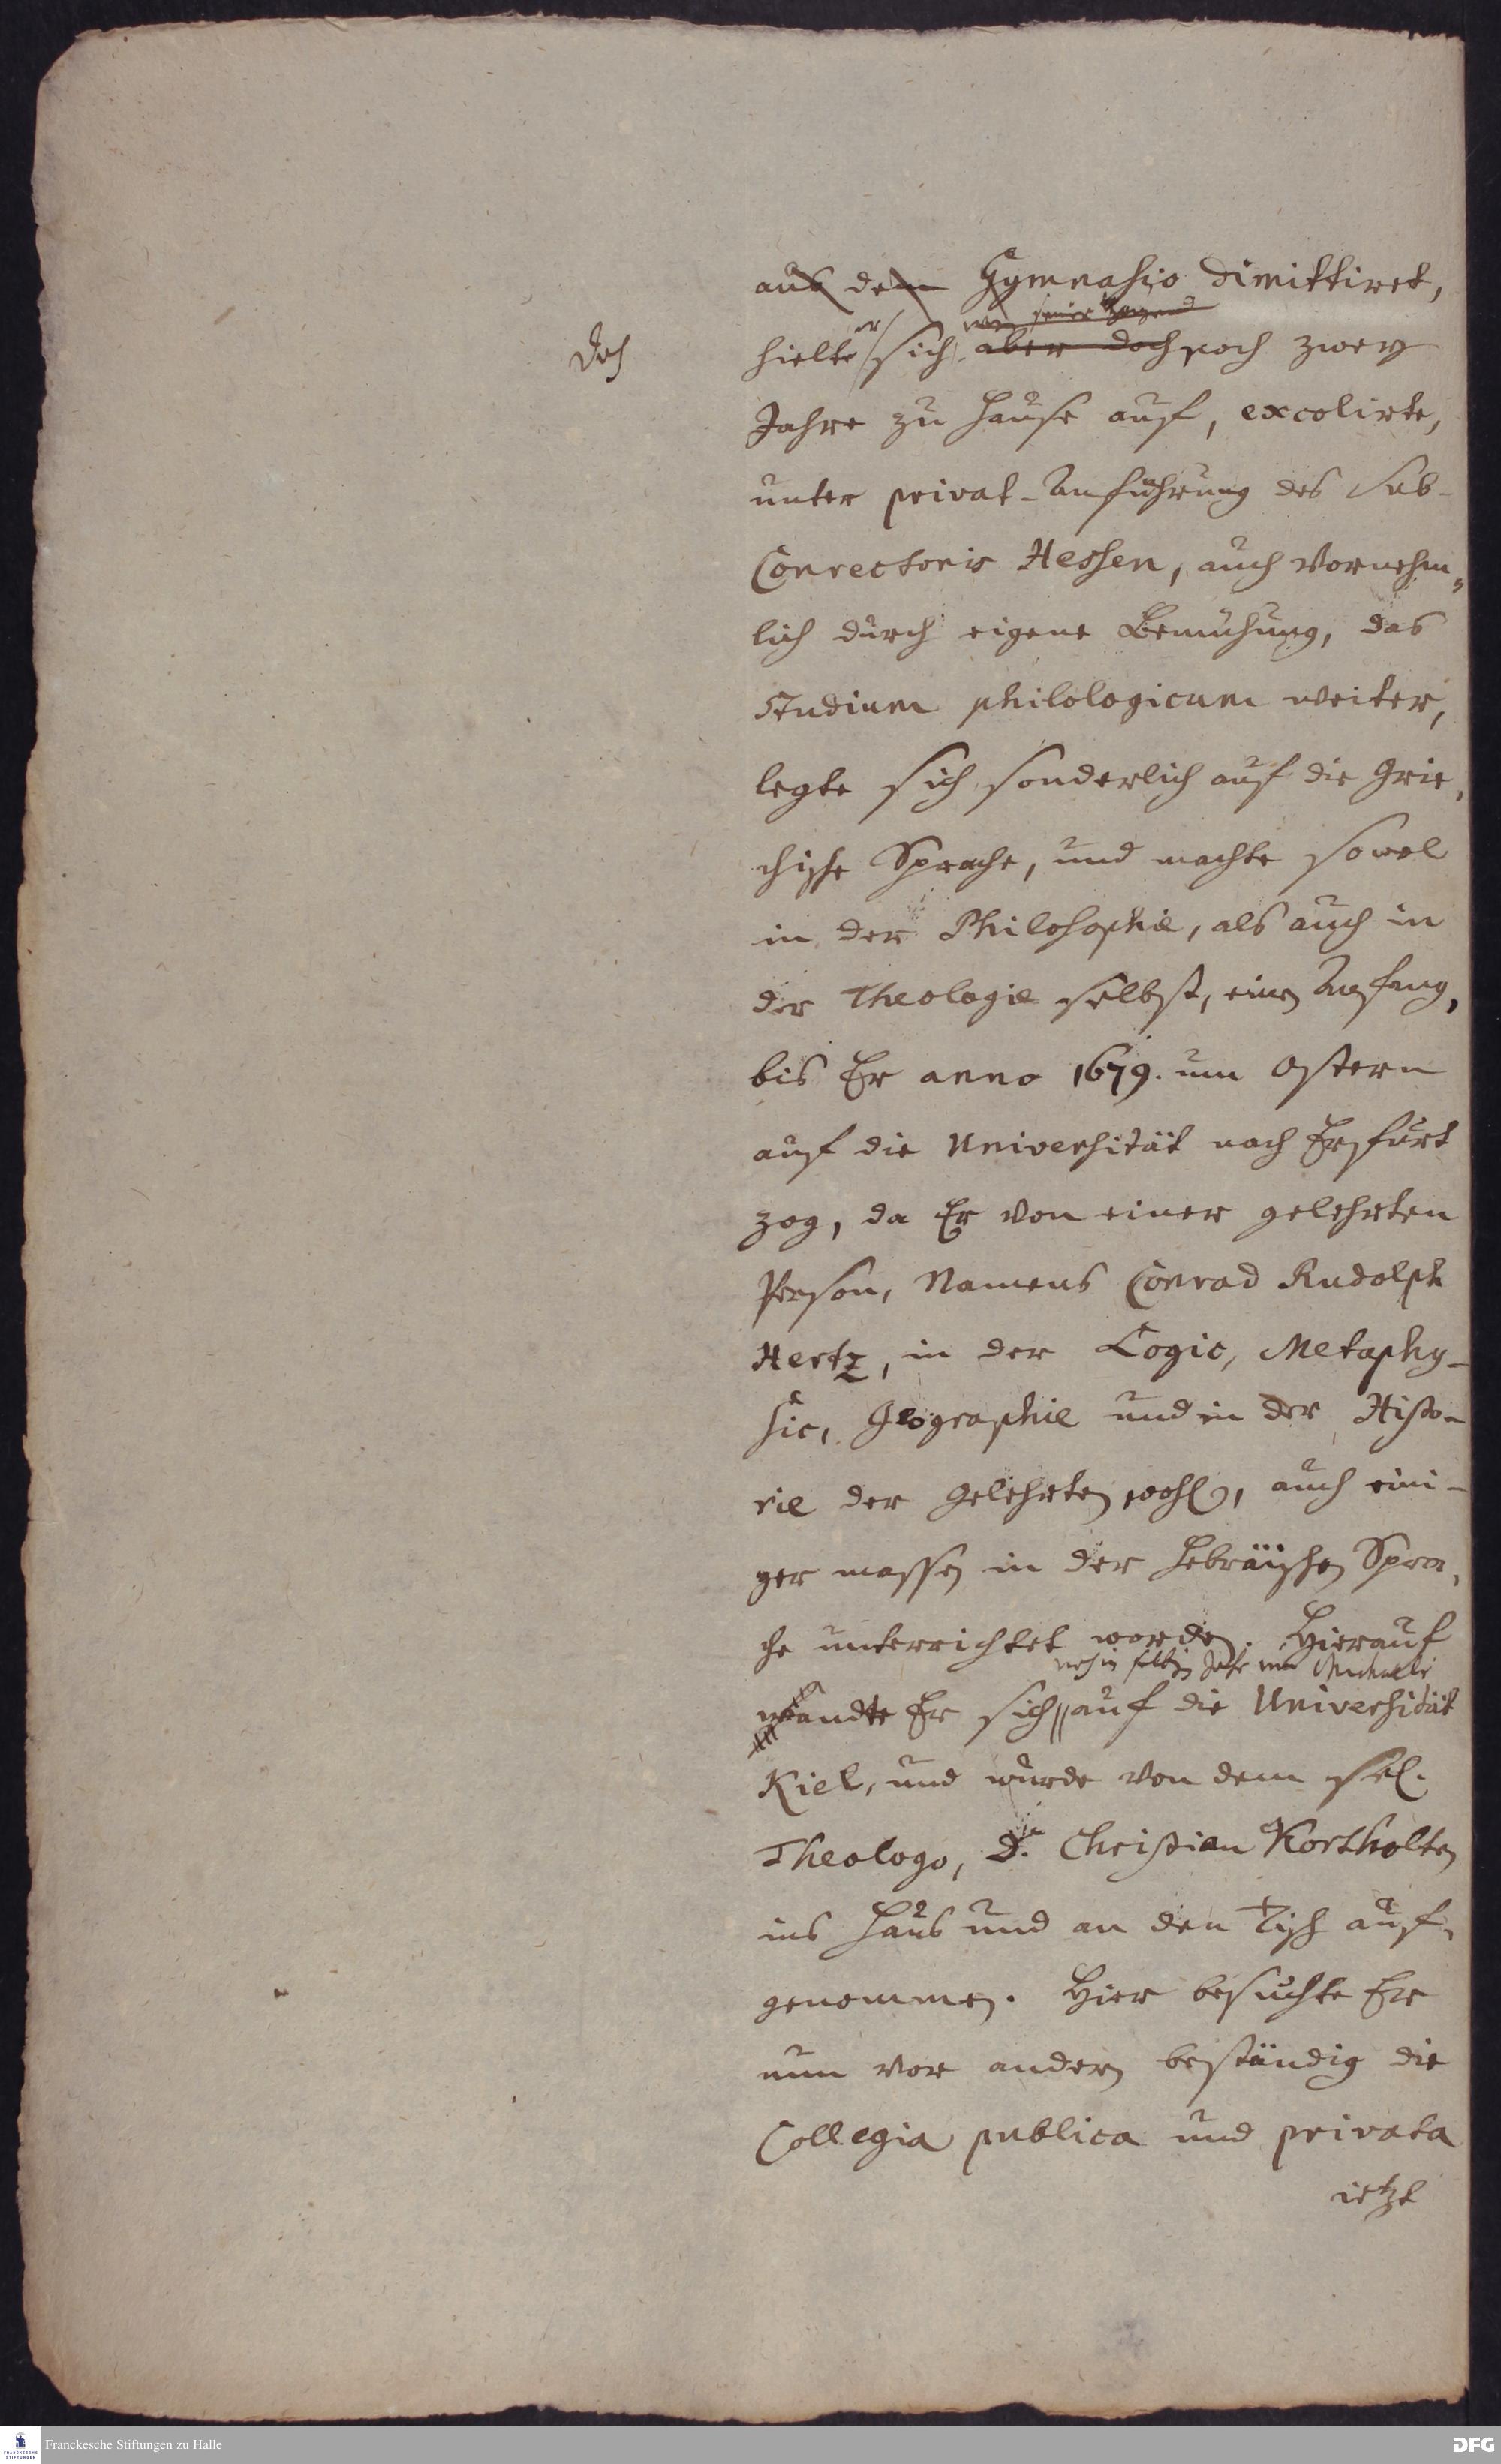 aus dem Gymnasio dimittiret,
er
wegen seiner Jugend
Doch
hielte sich aber doch noch zwey
Jahre zu Hause auf, excolirte,
unter privat-Anführung des Sub-
Conrectoris Hessen, auch vornehm=
lich durch eigene Bemühung, das
Studium philologicum weiter,
legte sich sonderlich auf die Grie,
chische Sprache, und machte sowol
in der Philosophie, als auch in
der Theologie selbst, einen Anfang,
bis Er anno 1679. um Ostern
auf die Universität nach Erfurt
zog, da Er von einer gelehrten
Person, Namens Conrad Rudolph
Hertz, in der Logic, Metaphy-
sic, Geographie und in der Histo-
rie der Gelehrten wohl, auch eini-
ger massen in der Hebräischen Spra,
che unterrichtet worden. Hierauf
noch in selbigem Jahr um Michaelis
wandte Er sich auf die Universität
Kiel, und wurde von dem sel.
Theologo, D. Christian Kortholten
ins Haus und an den Tisch auf,
genommen. Hier besuchte Er
nun vor andern beständig die
Collegia publica und privata
ietzt
Franckesche Stiftungen zu Halle
DFG